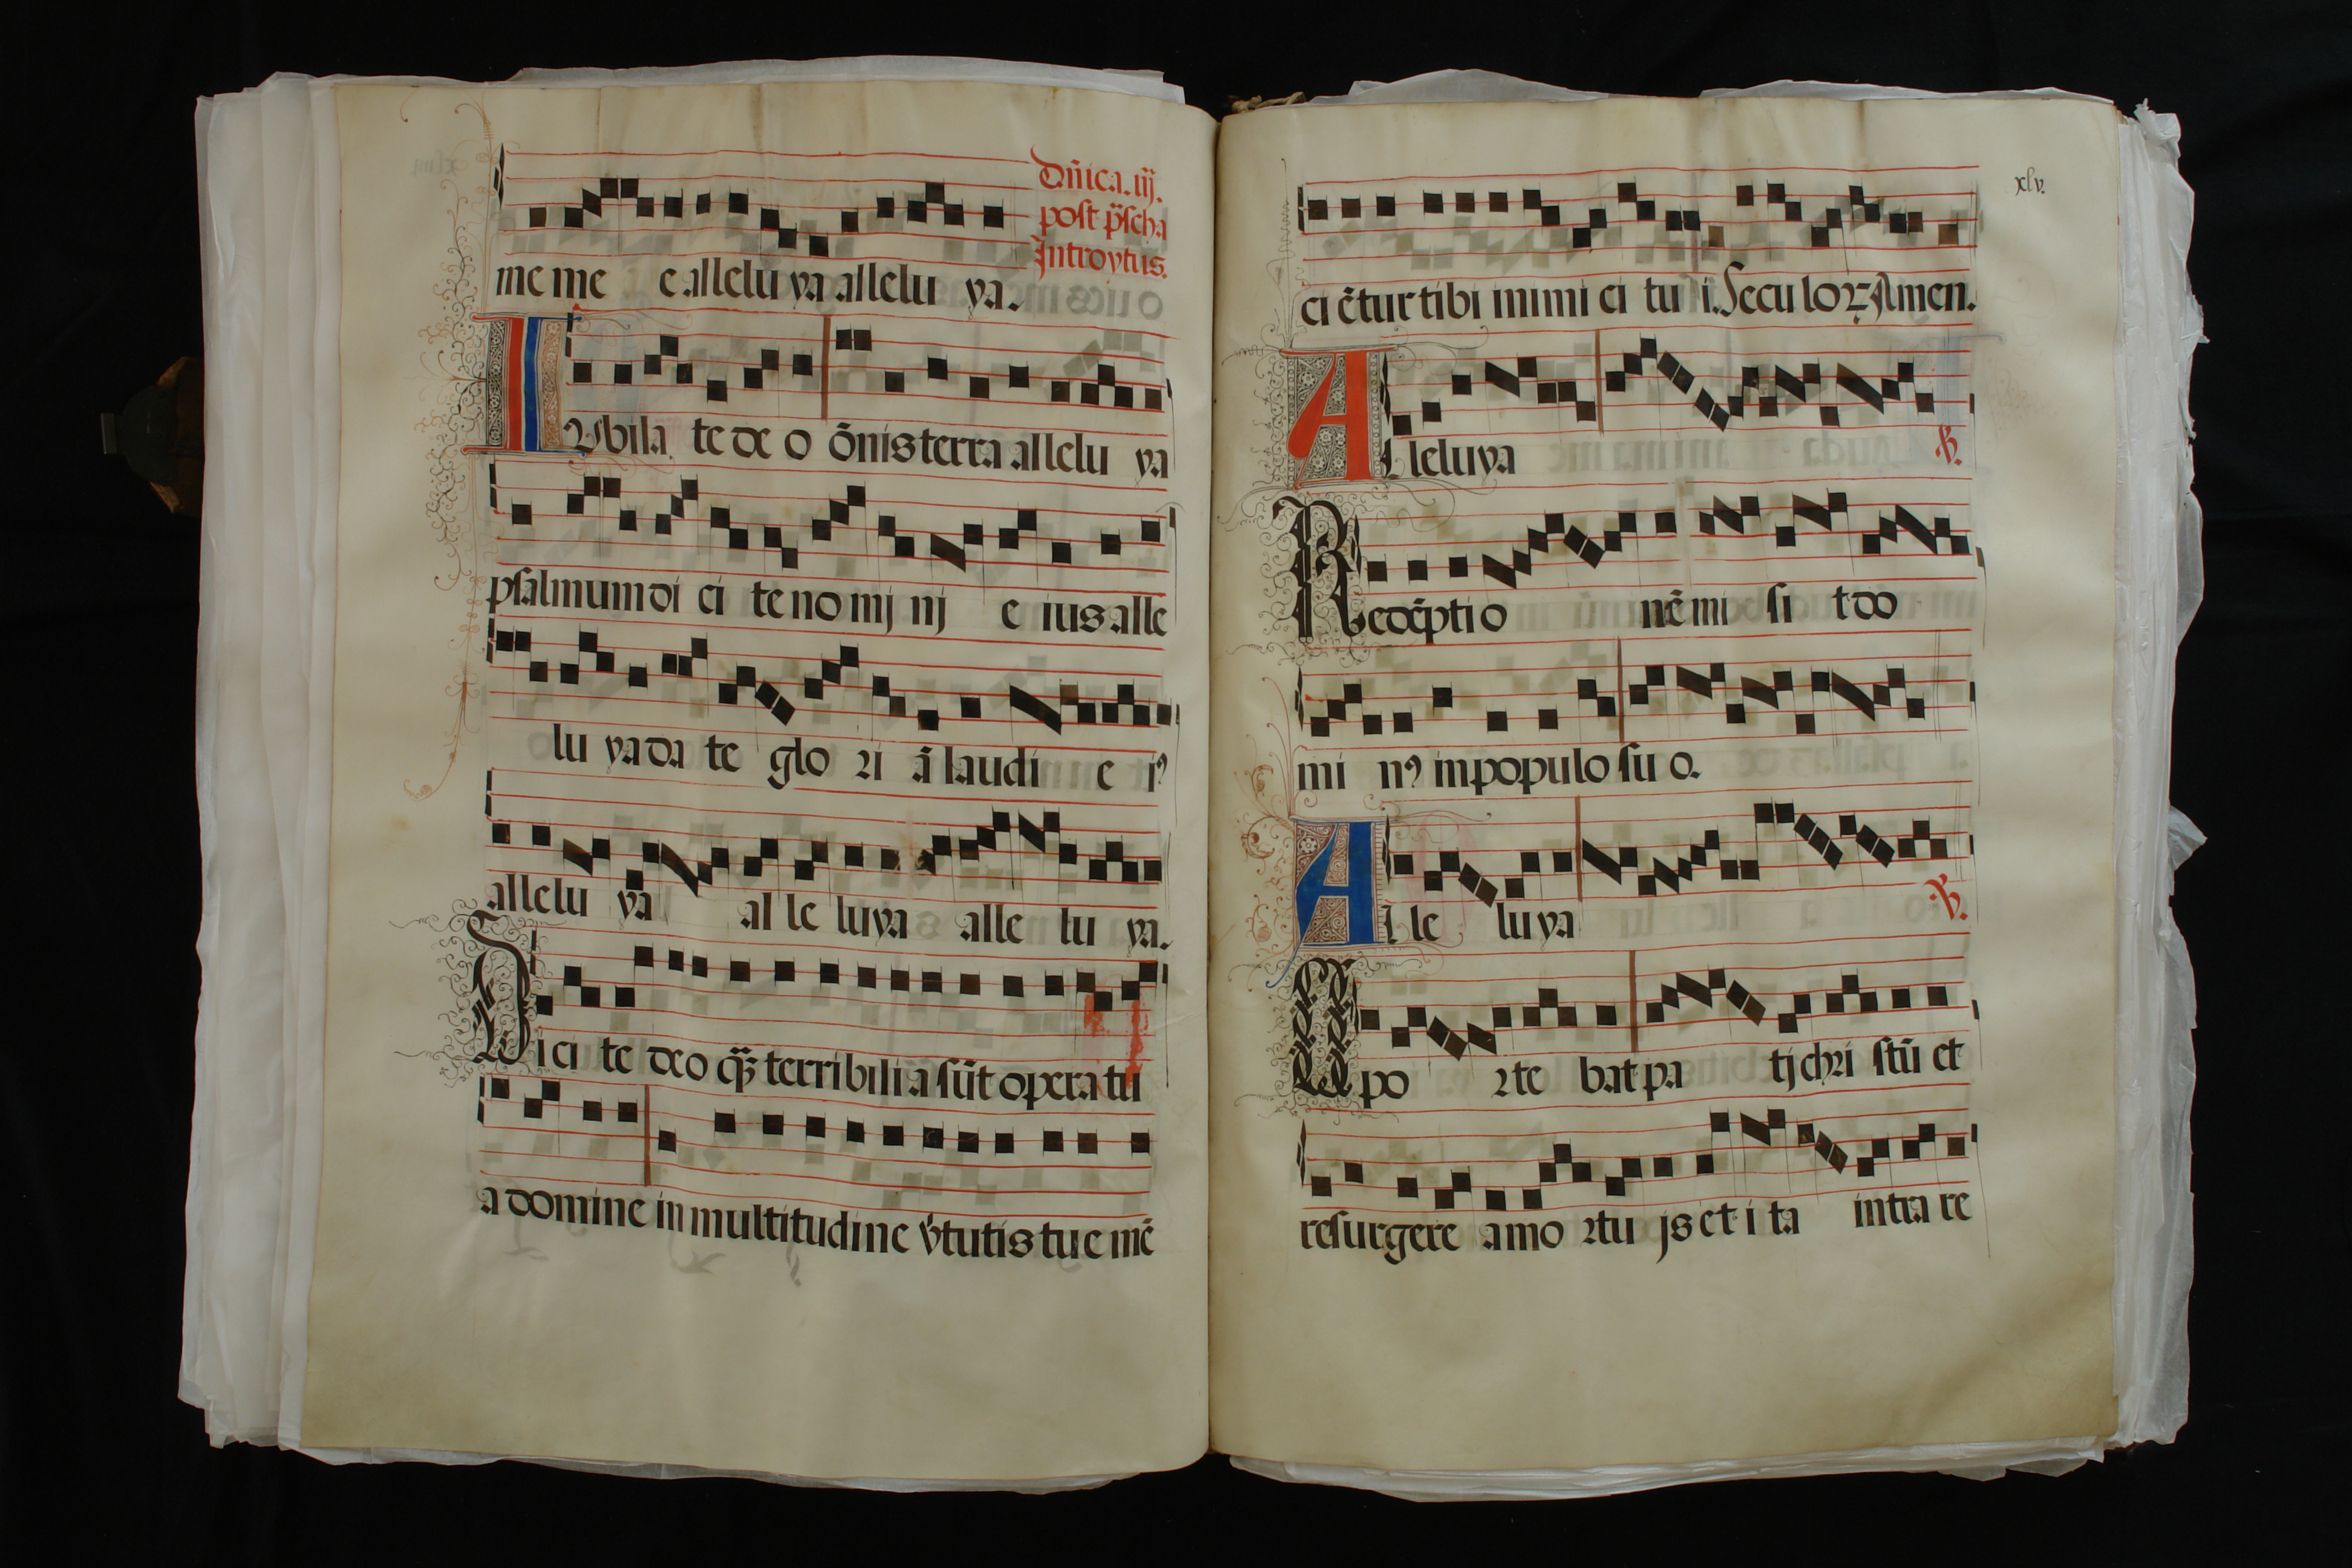 Dñica. iij.
post p̃scha
Introytus.
me me e allelu ya allelu ya.
Iubila te de o õnis terra allelu ya
psalmum di ci te no mj nj e ius alle
lu ya da te glo ri ã laudi e iꝰ
allelu ya al le luya alle lu ya.
Dici te deo q̃ȝ terribili a sũt opera tu
a domine in multitudine v̓tutis tue mẽ
xlv.
ci ẽtur tibi inimi ci tu i. Seculoꝝ Amen.
Alleluya ꝟ.
Redẽptio nẽ mi si t do
mi nꝰ in populo su o.
Al le luya ꝟ.
Opo rte bat pa tj chri stũ et
resurgere a mo rtu js et i ta intra re